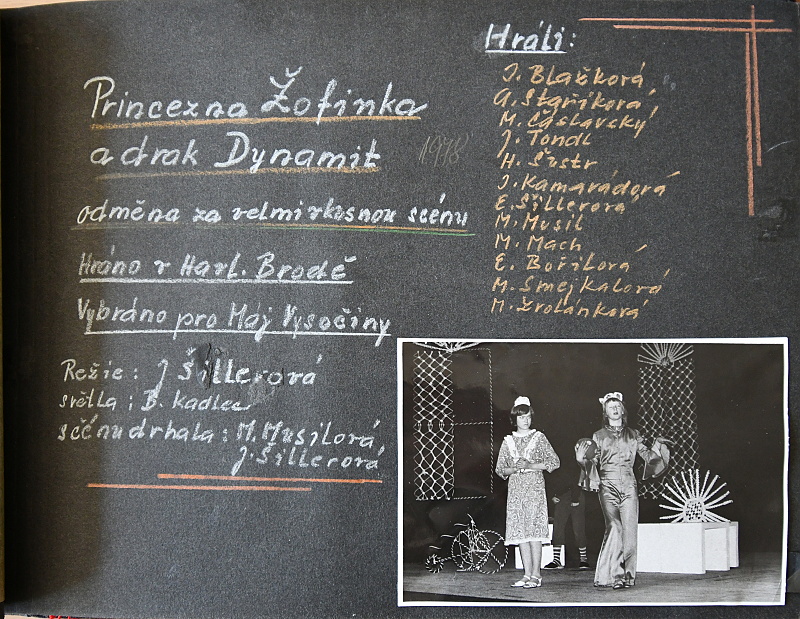 Princezna Žofinka
a drak Dynamit
1978
odměna za velmi vkusnou scénu
Hráno v Havl. Brodě
Vybráno pro Máj Vysočiny
Režie: J Šillerová
světla: B. Kadlec
scénu drhala: M. Musilová
J. Šillerová
Hráli:
J. Blažková
A. Staříková
M. Čáslavský
J. Tondl
H. Šustr
J. Kamarádová
E. Šillerová
M. Musil
M. Mach
E. Bořilová
M. Smejkalová
M. Zvolánková